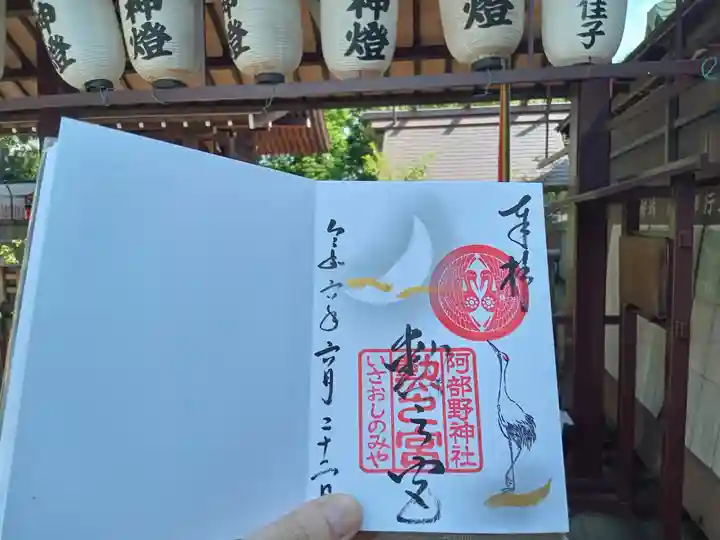 神燈
神燈
神燈
神燈
燈
佳子
奉拝
阿部野神社
勲之宮
勲之宮
いさおしのみや
令和六年六月二十二日